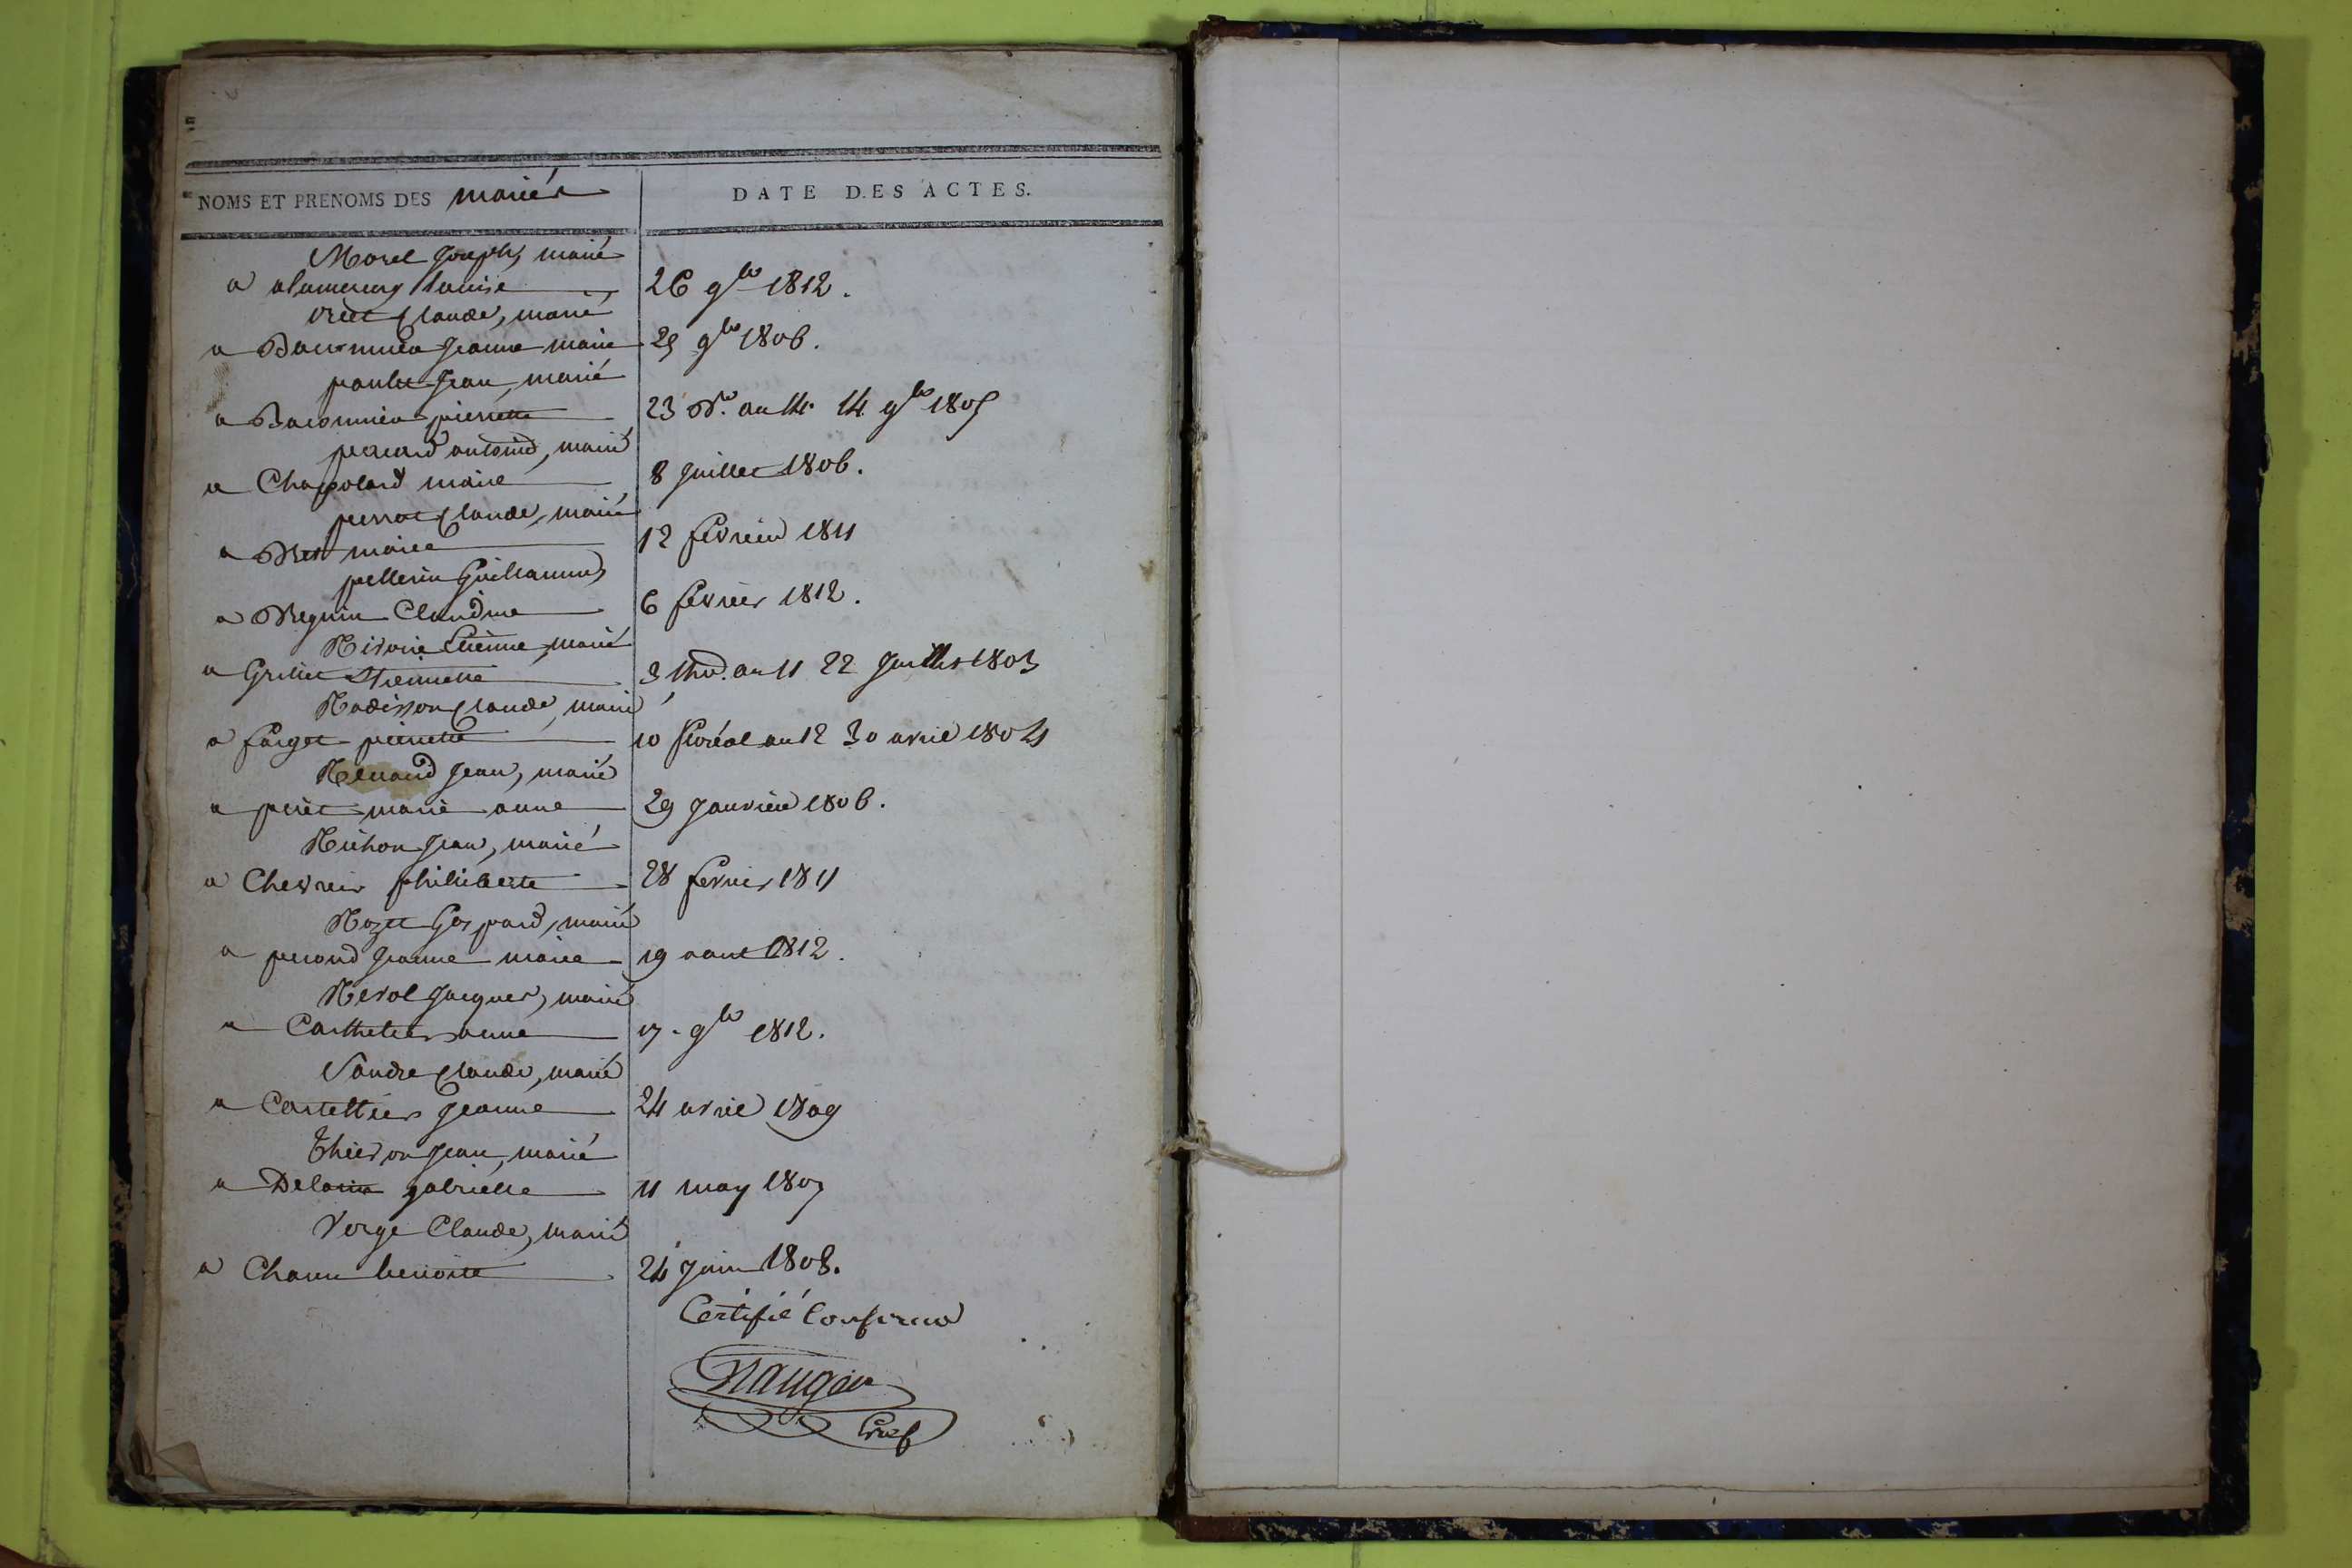 NOMS ET PRENOMS DES mariés
DATE DES ACTES.
Morel Joseph, marié
a alamercery Louise 26 9bre 1812.
Claude, marié
a Baconnier Jeanne marie 29 9bre 1806.
poulet Jean, marié
a Baconnier pierrette 23 Bre. an 14 14 9bre 1805
perrard antoine, marié
a Chapolard marie 8 Juillet 1806.
perrot Claude, marié
a Bret marie 12 fevrier 1811
pellerin Guillaume,
a Breguin Claudine 6 fevrier 1812.
Rivoire Etienne, marié
a Grilliet Etiennette 3 thd. an 11 22 Juillet 1803
Radisson Claude, marié
a farget pierrette 10 floréal an 12 30 avril 1804
Renaud Jean, marié
a peret marie anne 29 Janvier 1806.
Richon Jean, marié
a Chevrier philiberte 28 fevrier 1811
Rozet Gaspard, marié
a perond Jeanne marie 19 aout 1812.
Revol Jacques, marié
a Carthelier anne 17 9bre 1812.
Sandre Claude, marié
a Carteltier Jeanne 24 avril 1809
Thievon Jean, marié
a gabrielle 11 may 1807
Verge Claude, marié
a benoite 24 Juin 1808.
Certifié Conforme